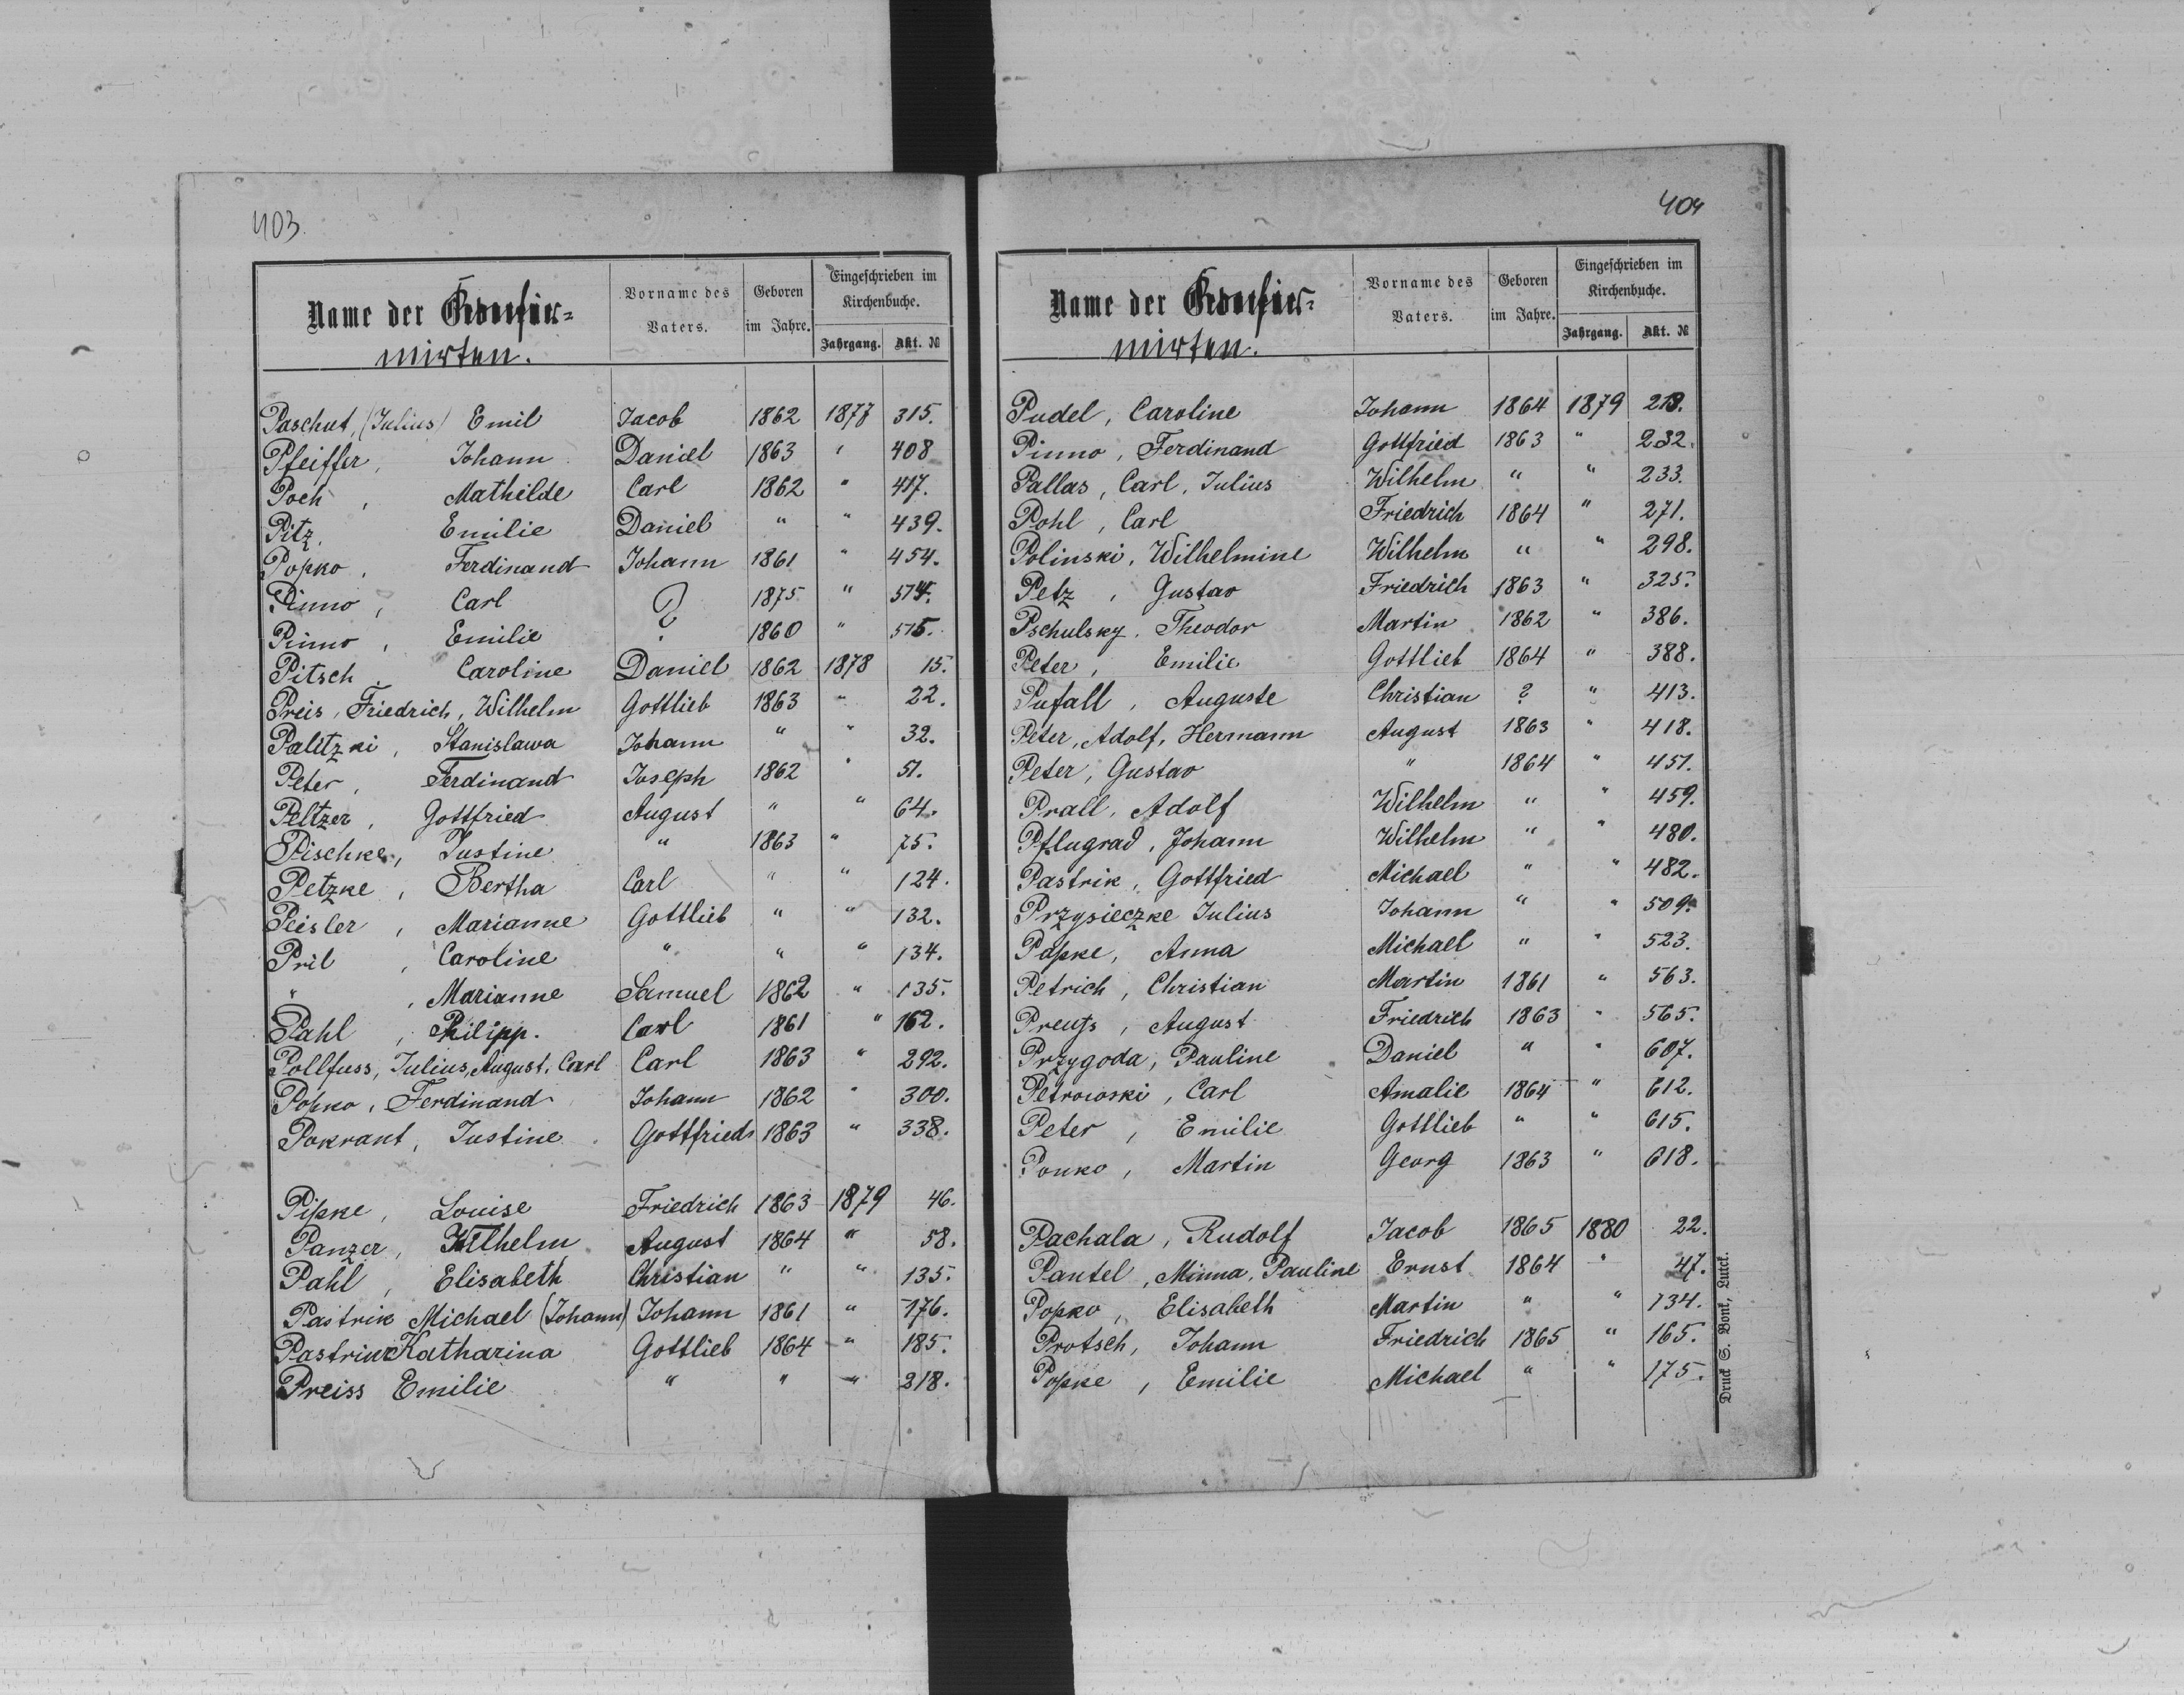 403.
Name der Konfir=
mirten.
Vorname des Vaters.
Geboren im Jahre.
Eingeschrieben im Kirchenbuche.
Jahrgang. Akt. №
Paschut, (Julius) Emil Jacob 1862 1877 315.
Pfeiffer, Johann Daniel 1863 " 408
Poch, Mathilde Carl 1862 " 417.
Pitz, Emilie Daniel " " 439.
Popko, Ferdinand Johann 1861 " 454.
Pinno, Carl ? 1875 " 574.
Pinno, Emilie ? 1860 " 575.
Pitsch, Caroline Daniel 1862 1878 15.
Preis, Friedrich, Wilhelm Gottlieb 1863 " 22.
Palitzki, Stanislawa Johann " " 32.
Peter, Ferdinand Joseph 1862 " 51.
Peltzer, Gottfried August " " 64.
Pischke, Justine " 1863 " 75.
Petzke, Bertha Carl " " 124.
Peisler, Marianne Gottlieb " " 132.
Pril, Caroline " " " 134.
", Marianne Samuel 1862 " 135.
Pahl, Philipp. Carl 1861 " 162.
Pollfuss, Julius, August, Carl Carl 1863 " 292.
Popko, Ferdinand Johann 1862 " 300.
Pokrant, Justine Gottfried 1863 " 338.
Pipke, Louise Friedrich 1863 1879 46.
Panzer, Wilhelm August 1864 " 58.
Pahl, Elisabeth Christian " " 135.
Pastrik Michael (Johann) Johann 1861 " 176.
Pastrik Katharina Gottlieb 1864 " 185.
Preiss Emilie " " " 218.
404
Name der Konfir=
mirten.
Vorname des Vaters.
Geboren im Jahre.
Eingeschrieben im Kirchenbuche.
Jahrgang. Akt. №
Pudel, Caroline Johann 1864 1879
Pinno, Ferdinand Gottfried 1863 " 232.
Pallas, Carl, Julius Wilhelm " " 233.
Pohl, Carl Friedrich 1864 " 271.
Polinski, Wilhelmine Wilhelm " " 298.
Petz, Gustav Friedrich 1863 " 325.
Pschulsky, Theodor Martin 1862 " 386.
Peter, Emilie Gottlieb 1864 " 388.
Pufall, Auguste Christian ? " 413.
Peter, Adolf, Hermann August 1863 " 418.
Peter, Gustav " 1864 " 451.
Prall, Adolf Wilhelm " " 459.
Pflugrad, Johann Wilhelm " " 480.
Pastrik, Gottfried Michael " " 482.
Przysieczke Julius Johann " " 509.
Papke, Anna Michael " " 523.
Petrich, Christian Martin 1861 " 563.
Preuss, August Friedrich 1863 " 565.
Przygoda, Pauline Daniel " " 607.
Petrowski, Carl Amalie 1864 " 612.
Peter, Emilie Gottlieb " " 615.
Ponko, Martin Georg 1863 " 618.
Pachala, Rudolf Jacob 1865 1880 22.
Pantel, Minna, Pauline Ernst 1864 " 47.
Popko, Elisabeth Martin " " 134.
Protsch, Johann Friedrich 1865 " 165.
Popke, Emilie Michael " " 175.
Druck S. Bonk, Lutck.